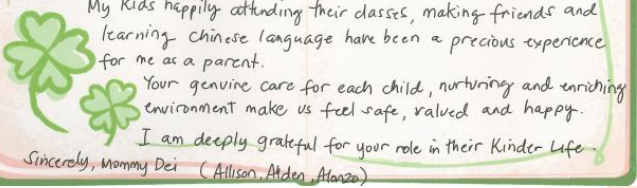 My Kids happily attending their classes, making friends and
learning chinese language have been a precious experience
for me as a parent.
Your genuine care for each child, nurturing and enriching
environment make us feel safe, valued and happy.
I am deeply grateful for your role in their Kinder Life.
Sincerely, Mommy Dei (Allison, Alden, Alonzo)